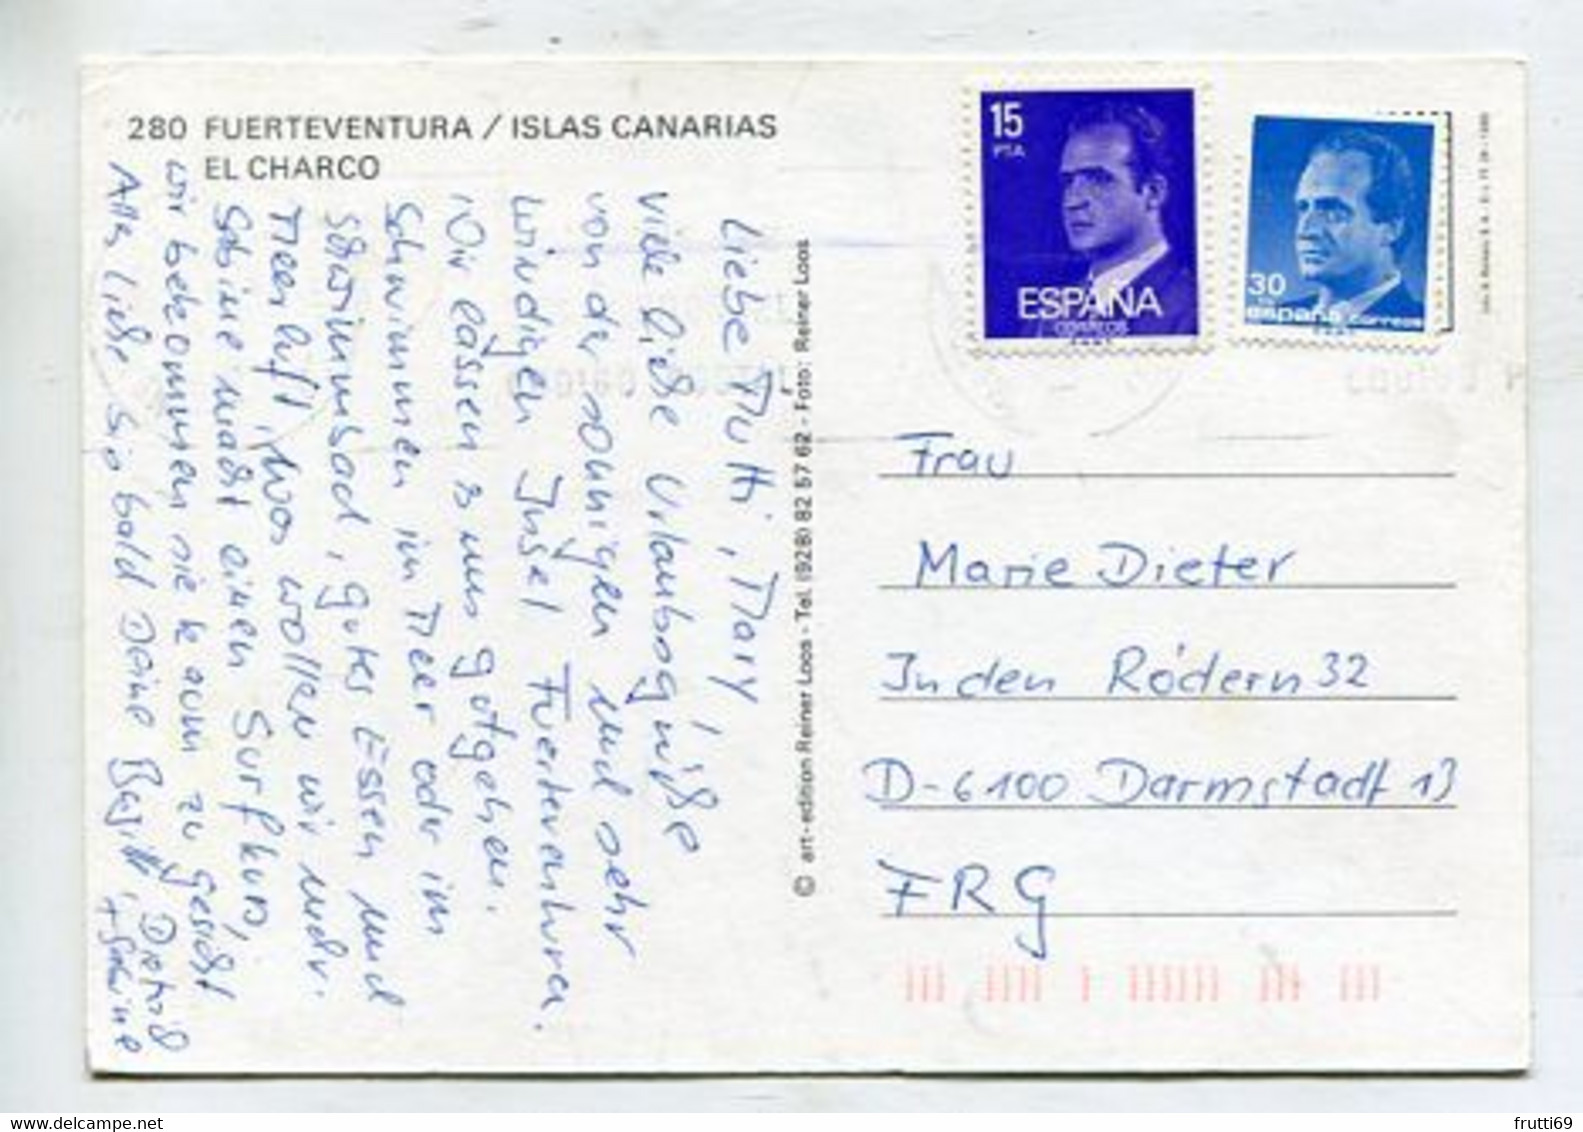 280 FUERTEVENTURA / ISLAS CANARIAS
EL CHARCO
Liebe Mutti, Mary!
Viele liebe Urlaubsgrüße
von der sonnigen und sehr
windigen Insel Fuerteventura.
Wir lassen's uns gutgehen.
Schwimmen im Meer oder im
Schwimmbad, gutes Essen und
Meerluft, was wollen wir mehr.
Sabine macht einen Surfkurs,
wir bekommen sie kaum zu Gesicht
Alles Liebe bis bald Deine Birgitt, Dietrich
+ Sabine
© art-edition Reiner Loos - Tel. (928) 82 57 62 - Foto: Reiner Loos
15
PTA
ESPAÑA
CORREOS
30
españa correos
Frau
Marie Dieter
In den Rödern 32
D-6100 Darmstadt 13
FRG
frutti69